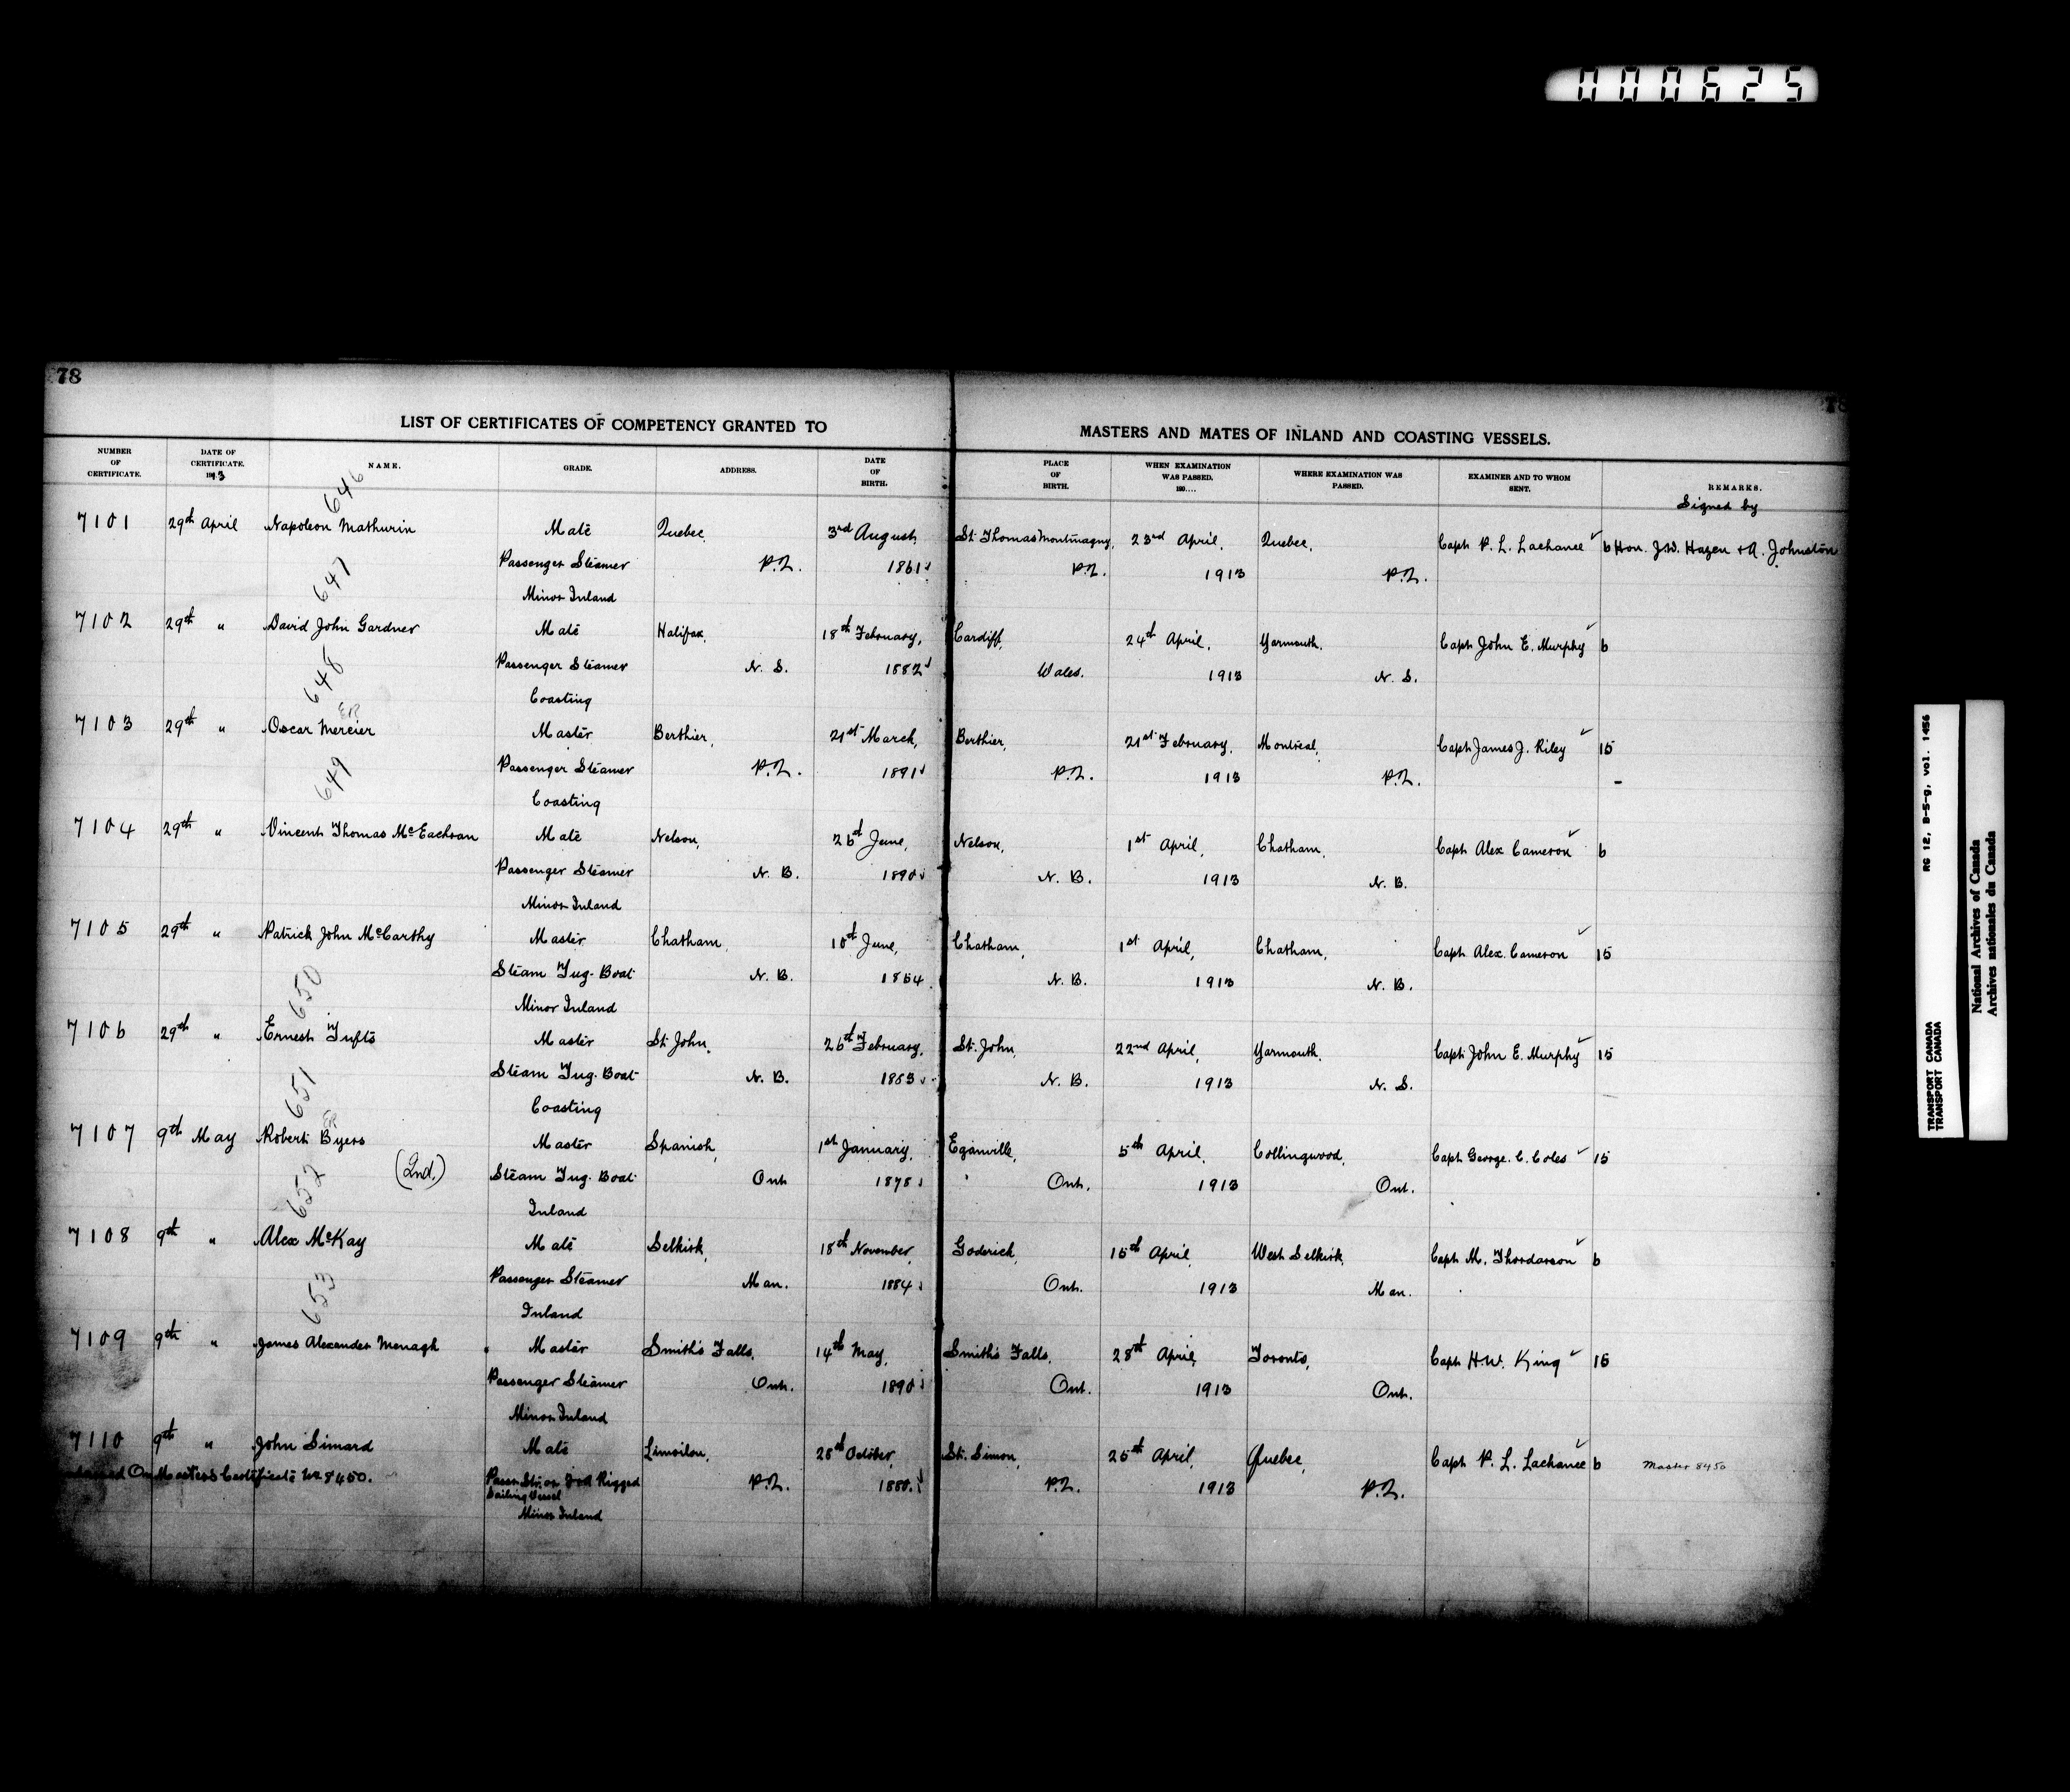 000625
78
78
LIST OF CERTIFICATES OF COMPETENCY GRANTED TO MASTERS AND MATES OF INLAND AND COASTING VESSELS.
NUMBER OF CERTIFICATE. DATE OF CERTIFICATE. 1913 NAME. GRADE. ADDRESS. DATE OF BIRTH. PLACE OF BIRTH. WHEN EXAMINATION WAS PASSED. 190.... WHERE EXAMINATION WAS PASSED. EXAMINER AND TO WHOM SENT. REMARKS.
Signed by
646
7101 29th April Napoleon Mathurin Mate Quebec, 3rd August, St. Thomas Montmagny, 23rd April, Quebec, Capt P. L. Lachance 6 Hon. J.W. Hazen + A. Johnston
Passenger Steamer P.Q. 1861 P.Q. 1913 P.Q.
Minor Inland
647
7102 29th " David John Gardner Mate Halifax, 18th February, Cardiff, 24th April, Yarmouth. Capt John E. Murphy 6
Passenger Steamer N. S. 1882 Wales. 1913 N. S.
Coasting
648
7103 29th " Oscar Mercier Master Berthier, 21st March, Berthier, 21st February, Montreal, Capt James J. Riley 15
Passenger Steamer P.Q. 1891 P.Q. 1913 P.Q.
Coasting
649
7104 29th " Vincent Thomas McEachran Mate Nelson, June, Nelson, 1st April, Chatham, Capt Alex Cameron 6
Passenger Steamer N. B. 1890 N. B. 1913 N. B.
Minor Inland
7105 29th " Patrick John McCarthy Master Chatham, June, Chatham, 1st April, Chatham, Capt. Alex. Cameron 15
Steam Tug-Boat N. B. N. B. 1913 N. B.
Minor Inland
650
7106 29th " Ernest Tufts Master St. John, 26th February, St. John, 22nd April, Yarmouth. Capt. John E. Murphy 15
Steam Tug-Boat N. B. N. B. 1913 N. S.
Coasting
651
7107 9th May Robert Byers Master Spanish, 1st January, Eganville, 5th April, Collingwood, Capt George. C. Coles 15
(2nd.) Steam Tug-Boat Ont 1878 Ont. 1913 Ont.
Inland
652
7108 9th " Alex McKay Mate Selkirk, 18th November, Goderich, 15th April, West Selkirk, Capt M. Thordarson 6
Passenger Steamer Man. 1884 Ont. 1913 Man.
Inland
653
7109 9th " James Alexander Menagh Master Smith's Falls, 14th May, Smith's Falls, 28th April, Toronto, Capt H.W. King 15
Passenger Steamer Ont. 1890 Ont. 1913 Ont.
Minor Inland
7110 9th " John Simard Mate Limoilou, 28th October, St. Simon, 25th April, Quebec, Capt P. L. Lachance 6 Master 8450
On Masters Certificate No 8450. Passr Str. or Rigged P.Q. 1880. P.Q. 1913 P.Q.
Sailing Vessel
Minor Inland
RG 12, B-5-g, vol. 1456
TRANSPORT CANADA
TRANSPORT CANADA
National Archives of Canada
Archives nationales du Canada